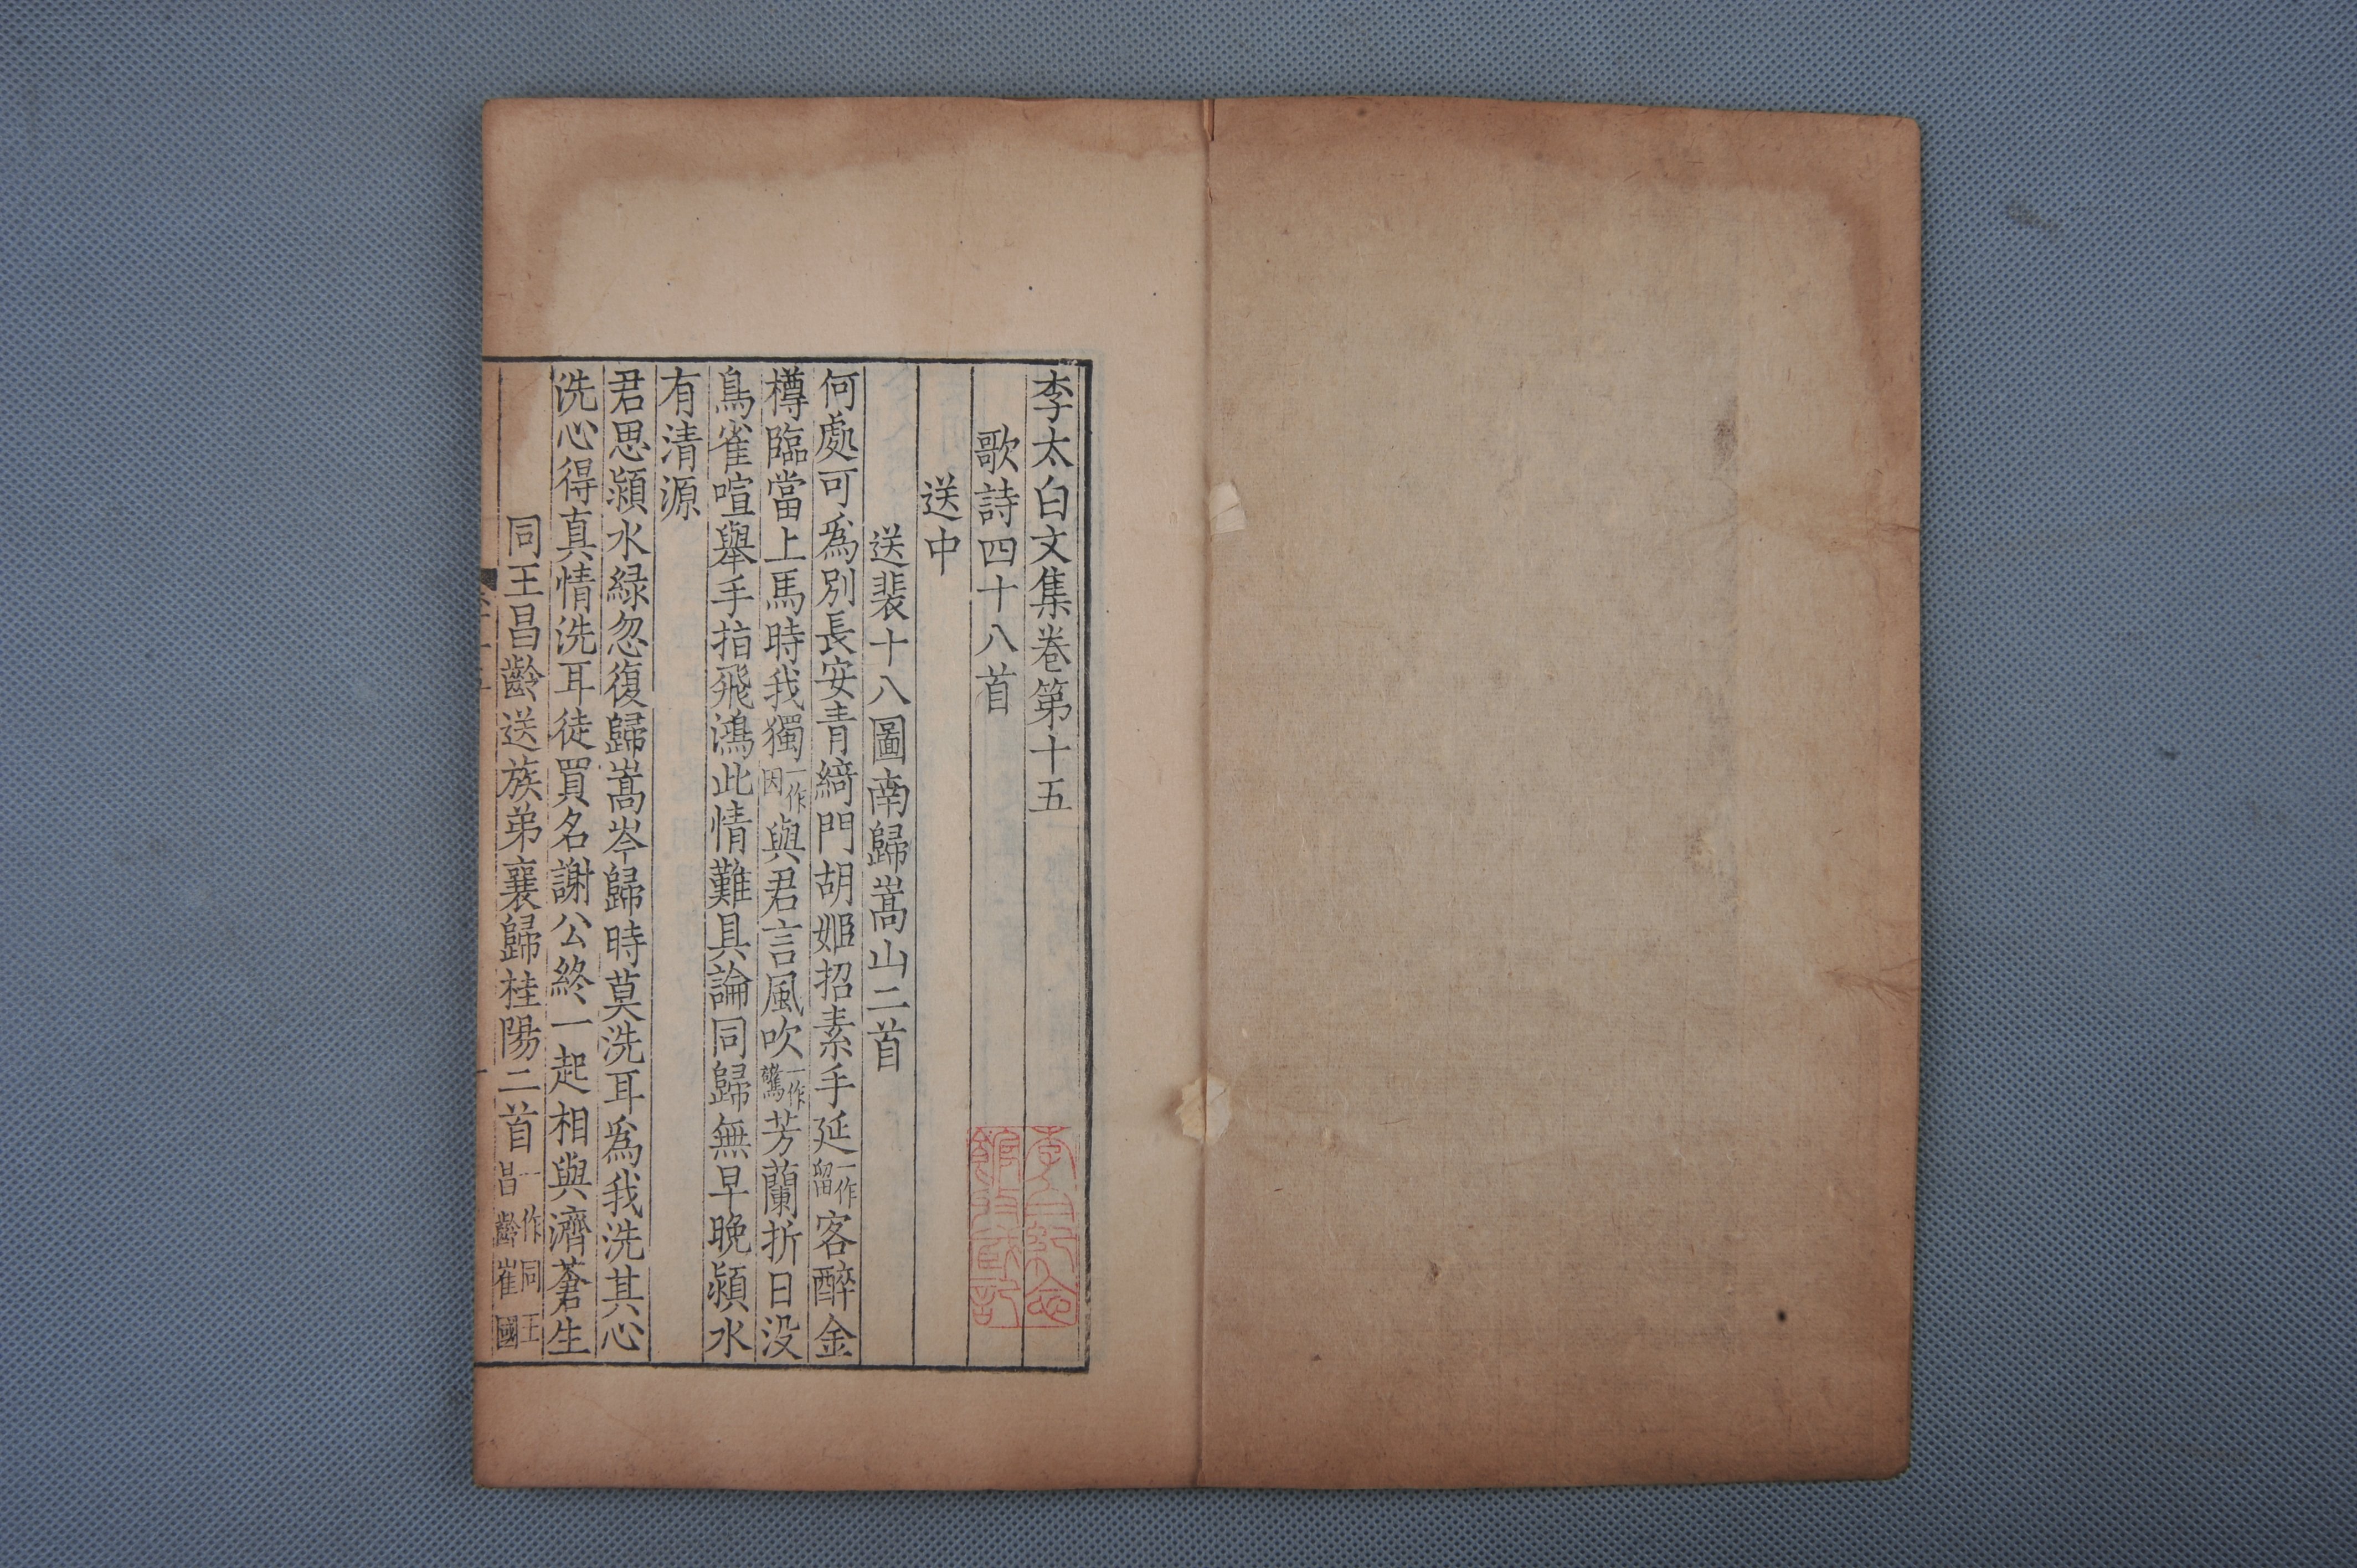 李太白文集卷第十五
歌詩四十八首
送中
送裴十八圖南歸嵩山二首
何處可爲別長安青綺門胡姬招素手延一作留客醉金
樽臨當上馬時我獨一作因與君言風吹一作驚芳蘭折日没
鳥雀喧舉手指飛鴻此情難具論同歸無早晚潁水
有清源
君思潁水緑忽復歸嵩岑歸時莫洗耳爲我洗其心
洗心得真情洗耳徒買名謝公終一起相與濟蒼生
同王昌齡送族弟襄歸桂陽二首一作同王昌齡崔國
李白紀念館收藏記